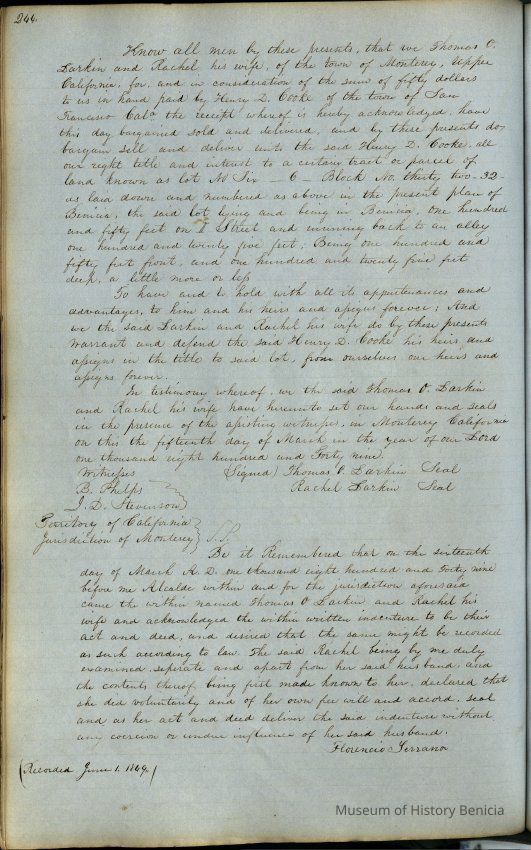 244.
Know all men by these presents, that we Thomas O.
Larkin and Rachel his wife, of the town of Monterey, Upper
California, for, and in consideration of the sum of fifty dollars
to us in hand paid by Henry D. Cooke of the town of San
Francisco Cala. the receipt whereof is hereby acknowledged, have
this day bargained sold and delivered, and by these presents do,
bargain sell and deliver unto the said Henry D. Cooke, all
our right title and interest to a certain tract or parcel of
land known as lot No Six _ 6 _ Block No. thirty two - 32 -
as laid down and numbered as above in the present plan of
Benicia, the said lot lying and being in Benicia, one hundred
and fifty feet on I Street and running back to an alley
one hundred and twenty five feet; Being one hundred and
fifty feet front, and one hundred and twenty five feet
deep, a little more or less
To have and to hold with all its appurtenances and
advantages, to him and his heirs and assigns forever; And
we the said Larkin and Rachel his wife do by these presents
warrant and defend the said Henry D. Cooke his heirs, and
assigns in the title to said lot, from ourselves our heirs and
assigns forever.
In testimony whereof, we the said Thomas O. Larkin
and Rachel his wife have hereunto set our hands and seals
in the presence of the assisting witnesses, in Monterey California
on this the fifteenth day of March in the year of our Lord
one thousand eight hundred and Forty nine.
Witnesses (Signed) Thomas O. Larkin Seal
B. Phelps Rachel Larkin Seal
J. D. Stevenson
Territory of California
Jurisdiction of Monterey } S.S.
Be it Remembered that on the sixteenth
day of March A. D. one thousand eight hundred and Forty nine
before me Alcalde within and for the jurisdiction aforesaid
came the within named Thomas O Larkin, and Rachel his
wife and acknowledged the within written indenture to be their
act and deed, and desired that the same might be recorded
as such according to law. The said Rachel being by me duly
examined, seperate and apart from her said husband, and
the contents thereof being first made known to her, declared that
she did voluntarily and of her own free will and accord, seal
and as her act and deed deliver the said indenture without
any coercion or undue influence of her said husband.
Florencio Serrano
(Recorded June 1. 1849.)
Museum of History Benicia